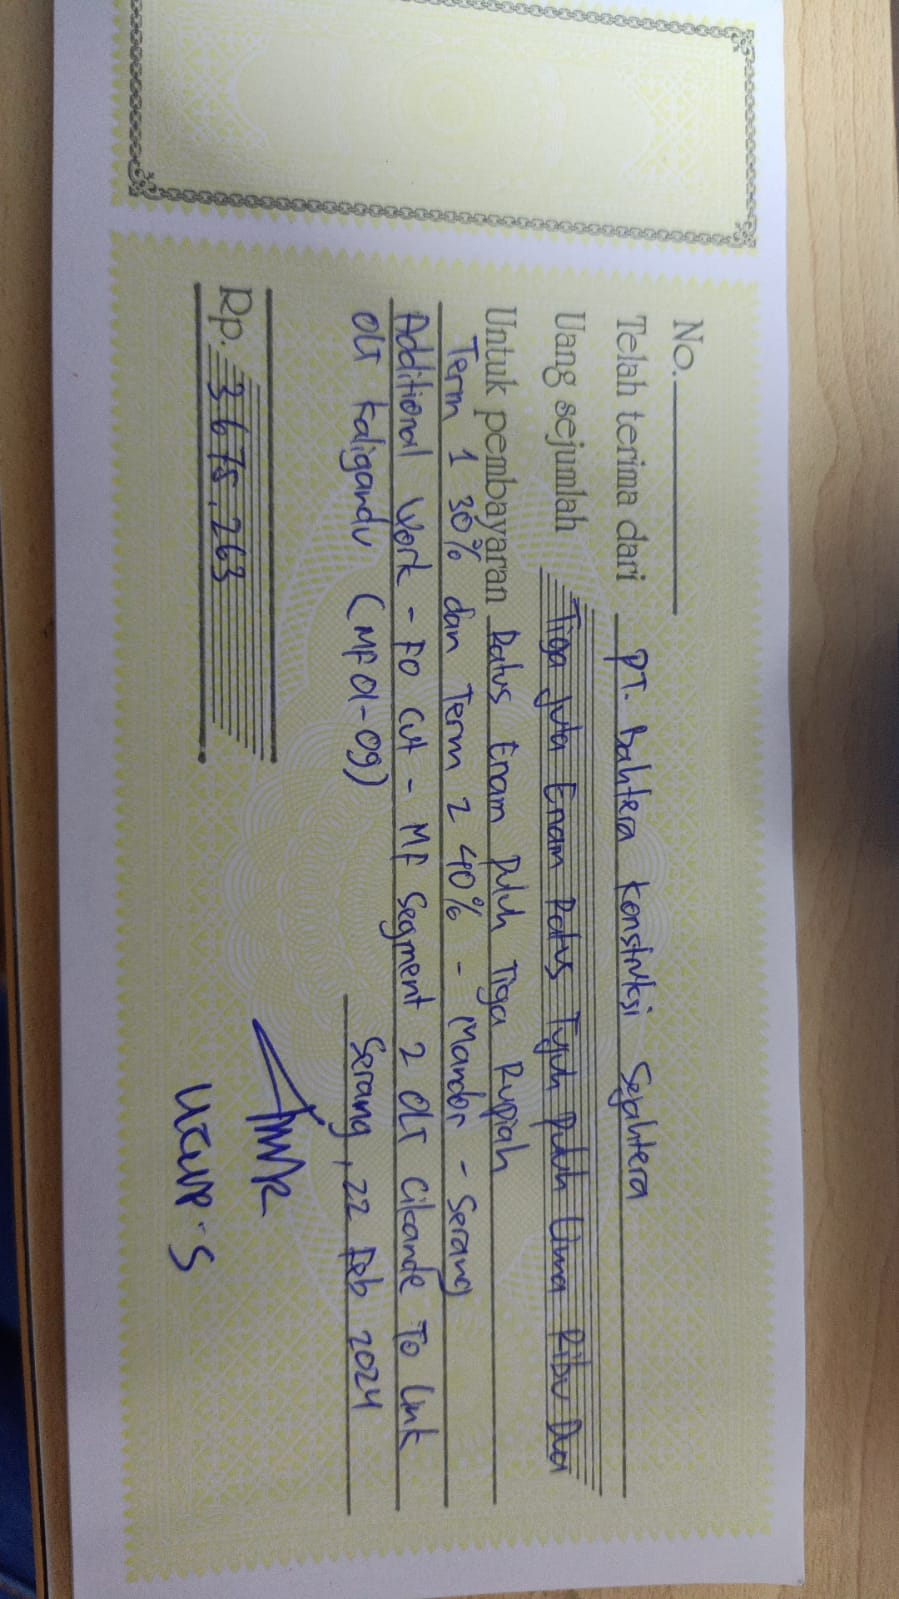 No.
Telah terima dari PT. Bahtera Konstruksi Sejahtera
Uang sejumlah Tiga Juta Enam Ratus Tujuh puluh Lima Ribu Dua
Untuk pembayaran Ratus Enam Puluh Tiga Rupiah
Term 1 30% dan Term 2 40% - Mandor - Serang
Additional Work - FO Cut - MF Segment 2 OLT Cikande To Link
OLT Kaligandu (MF01-09)
Serang, 22 Feb 2024
Rp. 3675.263
Ucup.S